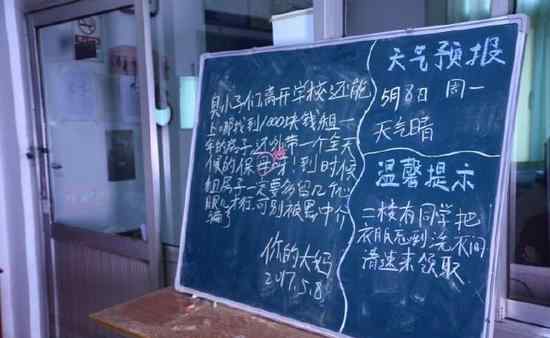 臭小子们,离开学校还能
上哪找到1000块钱租一
年的房子还外带一个全天
候的保母呀!到时候
租房子一定要多留几个心
眼儿才行,可别被黑中介
骗了
你的大妈
2017.5.8
天气预报
5月8日 周一
天气晴
温馨提示
二楼有同学把
衣服忘到洗衣间
请速来领取